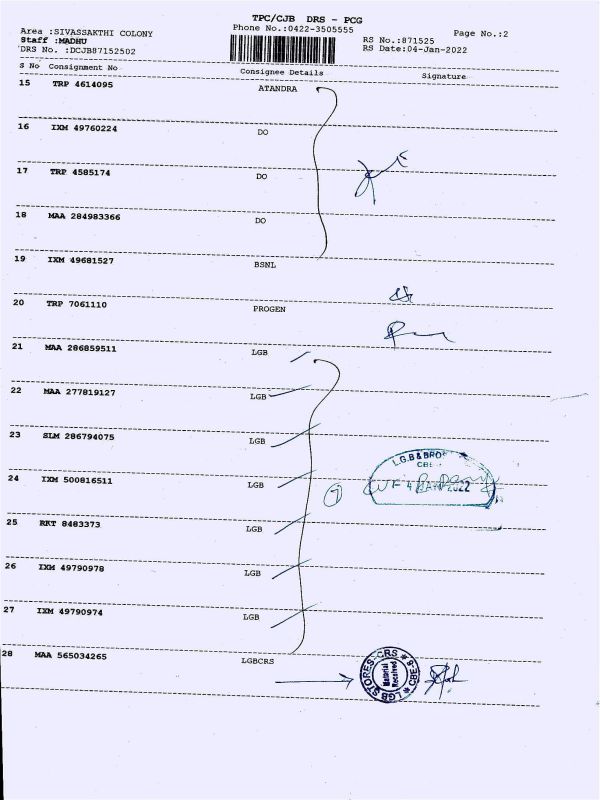 TPC/CJB DRS - PCG
Area :SIVASSAKTHI COLONY Phone No.:0422-3505555 Page No.:2
Staff :MADHU RS No.:871525
DRS No. :DCJB87152502 RS Date:04-Jan-2022
S No Consignment No Consignee Details Signature
15 TRP 4614095 ATANDRA
16 IXM 49760224 DO
17 TRP 4585174 DO
18 MAA 284983366 DO
19 IXM 49681527 BSNL
20 TRP 7061110 PROGEN
21 MAA 286859511 LGB
22 MAA 277819127 LGB
23 SLM 286794075 LGB
L.G.B & BRO
CBE
24 IXM 500816511 LGB
7
4 JAN 2022
25 RKT 8483373 LGB
26 IXM 49790978 LGB
27 IXM 49790974 LGB
28 MAA 565034265 LGBCRS
LGB STORES-CRS CBE-6
Material
Received